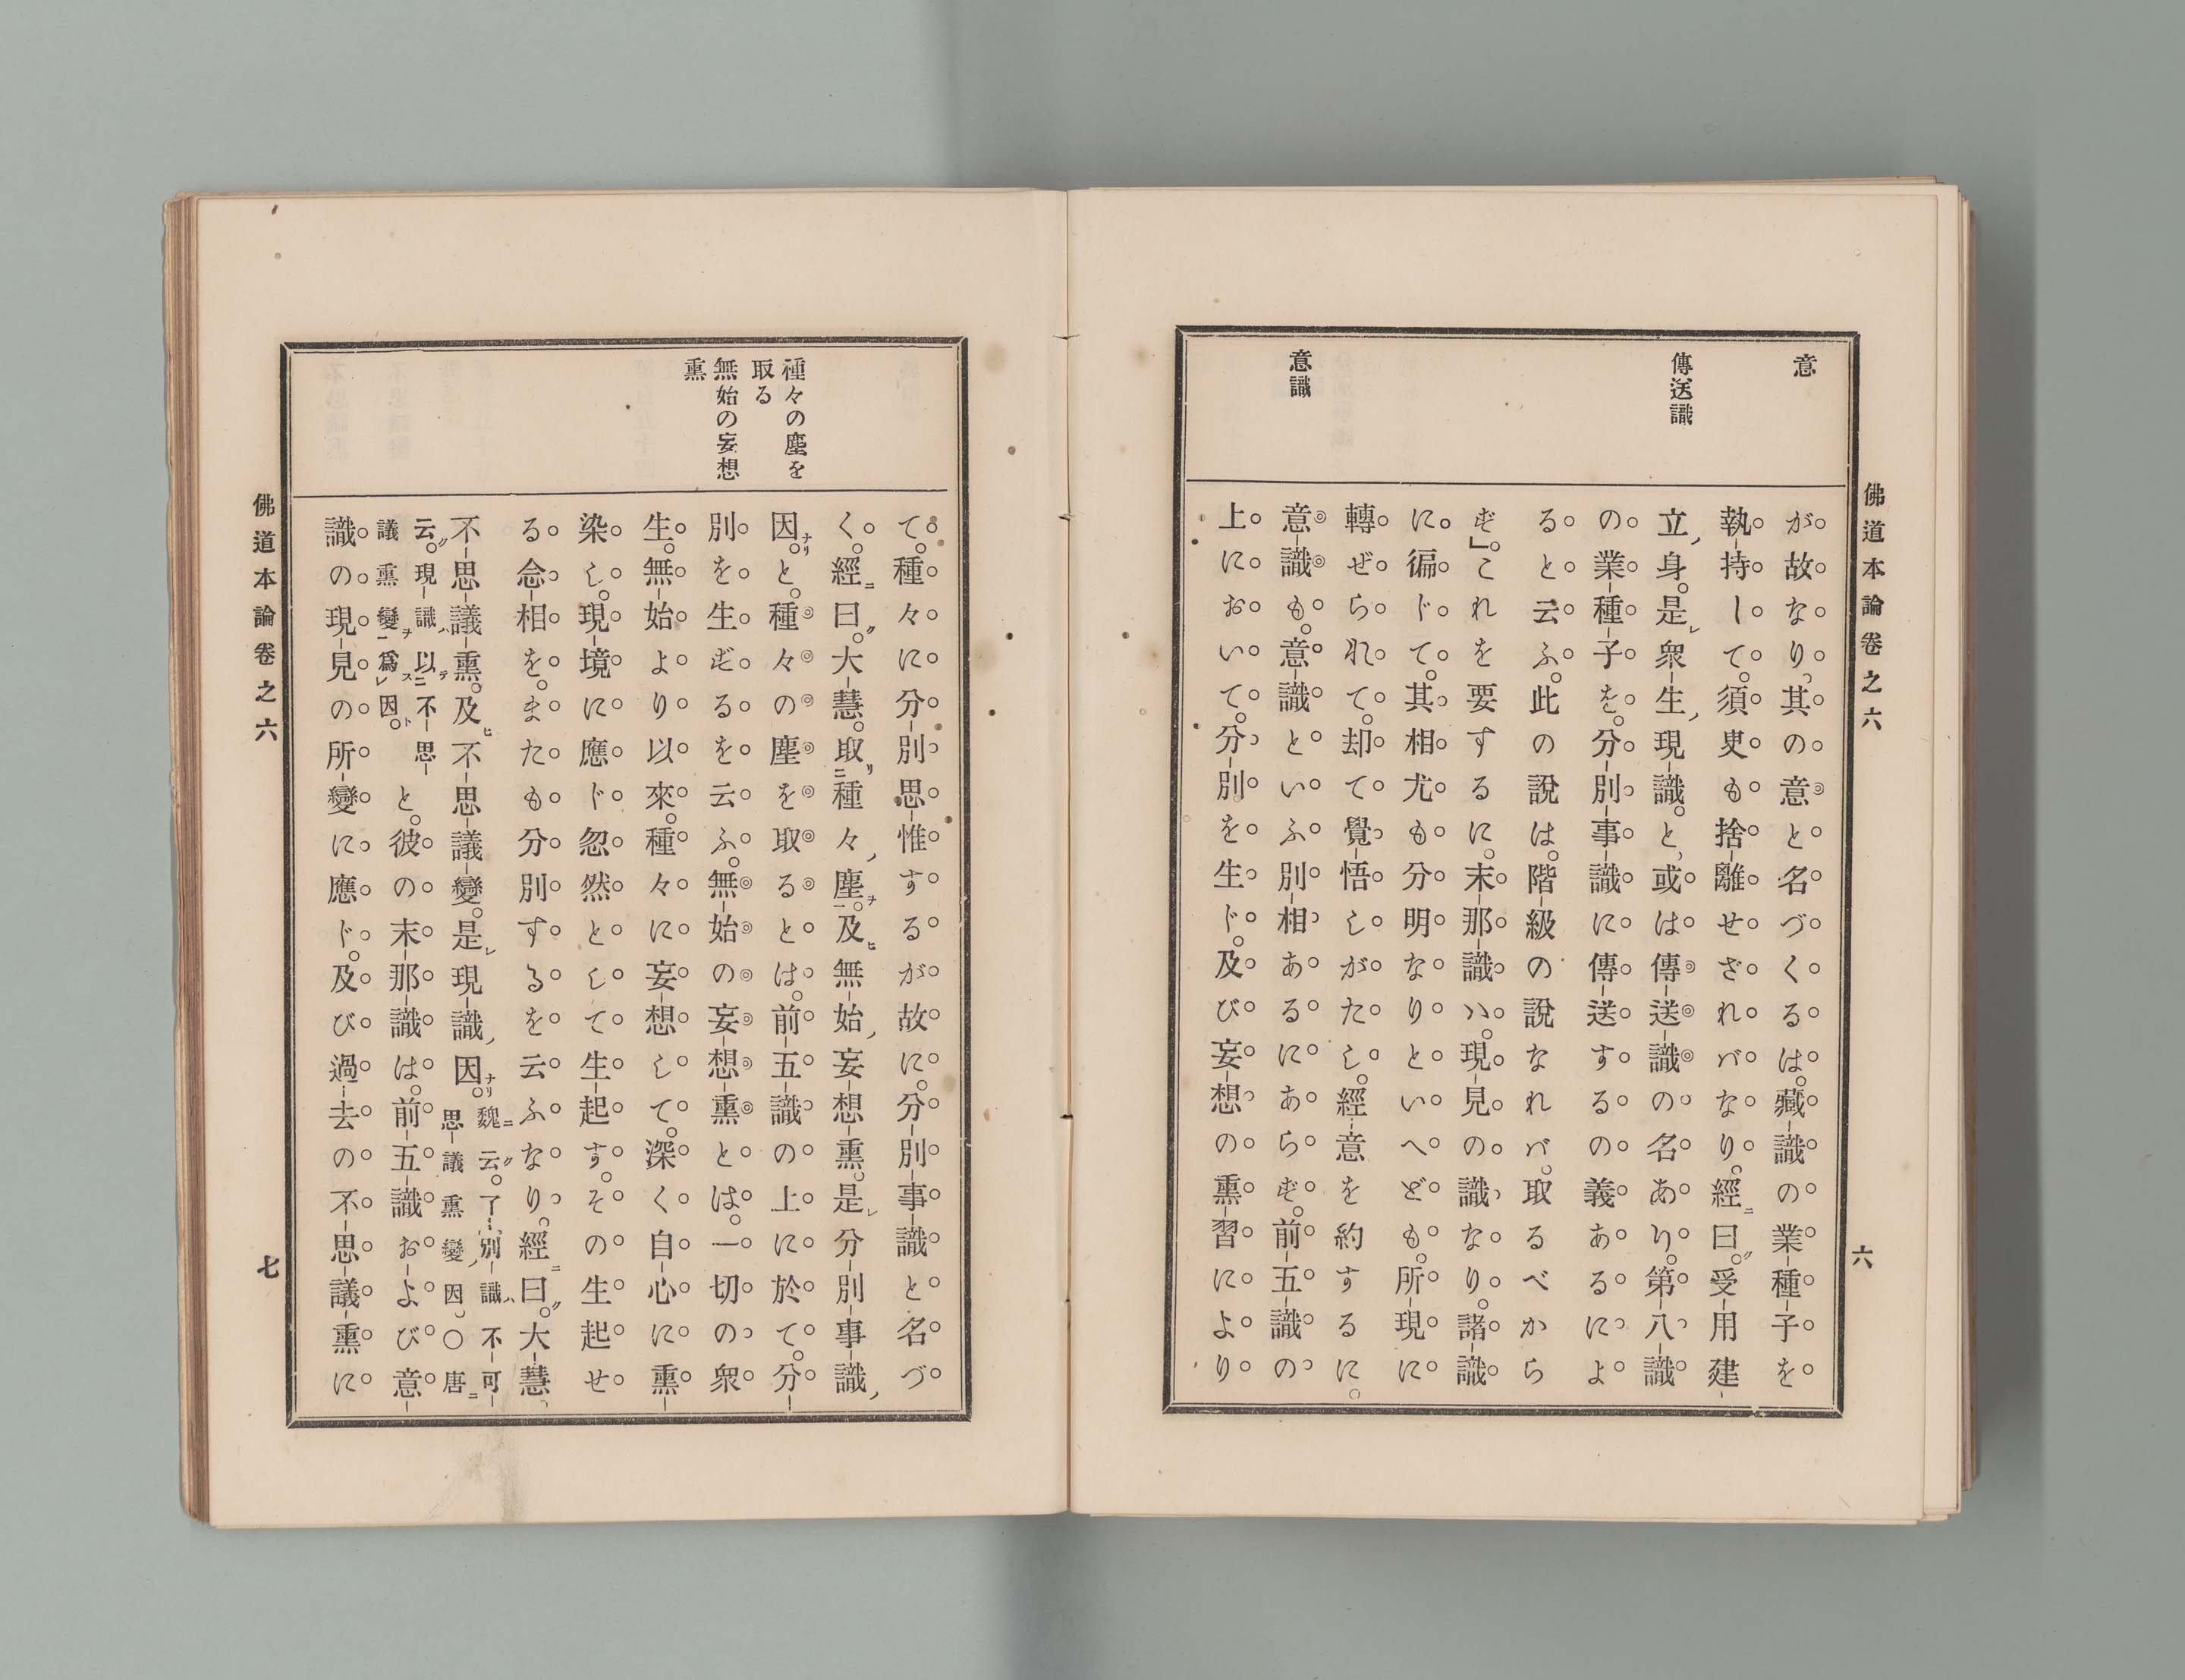 佛道本論卷之六
六
意
傳送識
意識
が故なり、其の意と名づくるは。藏識の業種子を
執持して。須臾も捨離せざれバなり。經ニ曰ク。受用建
立ノ身。是レ衆生ノ現識。と、或は傳送識の名あり。第八識
の業種子を。分別事識に傳送するの義あるによ
ると云ふ。此の說は。階級の說なれバ。取るべから
ず」。これを要するに。末那識ハ。現見の識なり。諸識
に徧じて。其相尤も分明なりといへども。所現に
轉ぜられて。却て覺悟しがたし。經意を約するに。
意識も。意識といふ別相あるにあらず。前五識の
上において。分別を生じ。及び妄想の熏習により
種々の塵を
取る
無始の妄想
熏
て。種々に分別思惟するが故に。分別事識と名づ
く。經ニ曰ク。大慧。取リ二種々ノ塵ヲ一。及ヒ無始ノ妄想熏。是レ分別事識ノ
因ナリ。と。種々の塵を取るとは。前五識の上に於て。分
別を生ずるを云ふ。無始の妄想熏とは。一切の衆
生。無始より以來。種々に妄想して。深く自心に熏
染し。現境に應じ忽然として生起す。その生起せ
る念相を。またも分別するを云ふなり。經ニ曰ク。大慧、
不思議熏。及ヒ不思議變。是レ現識ノ因ナリ。魏ニ云ク。了別識ハ不可
思議熏變ノ因〇唐ニ
云ク。現識ハ以テ二不思
議熏變ヲ一爲スレ因ト。と。彼の末那識は。前五識および意
識の現見の所變に應じ。及び過去の不思議熏に
佛道本論卷之六
七